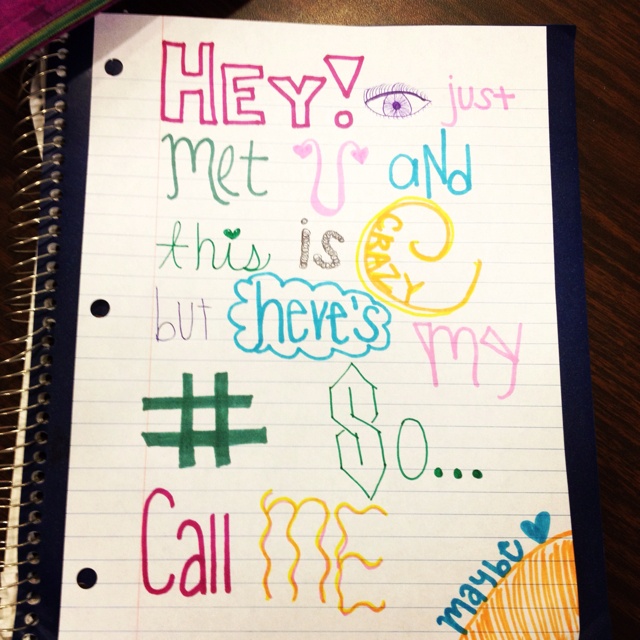 HEY! just
Met U and
this is CRAZY
but here's my
# So...
Call ME
maybe